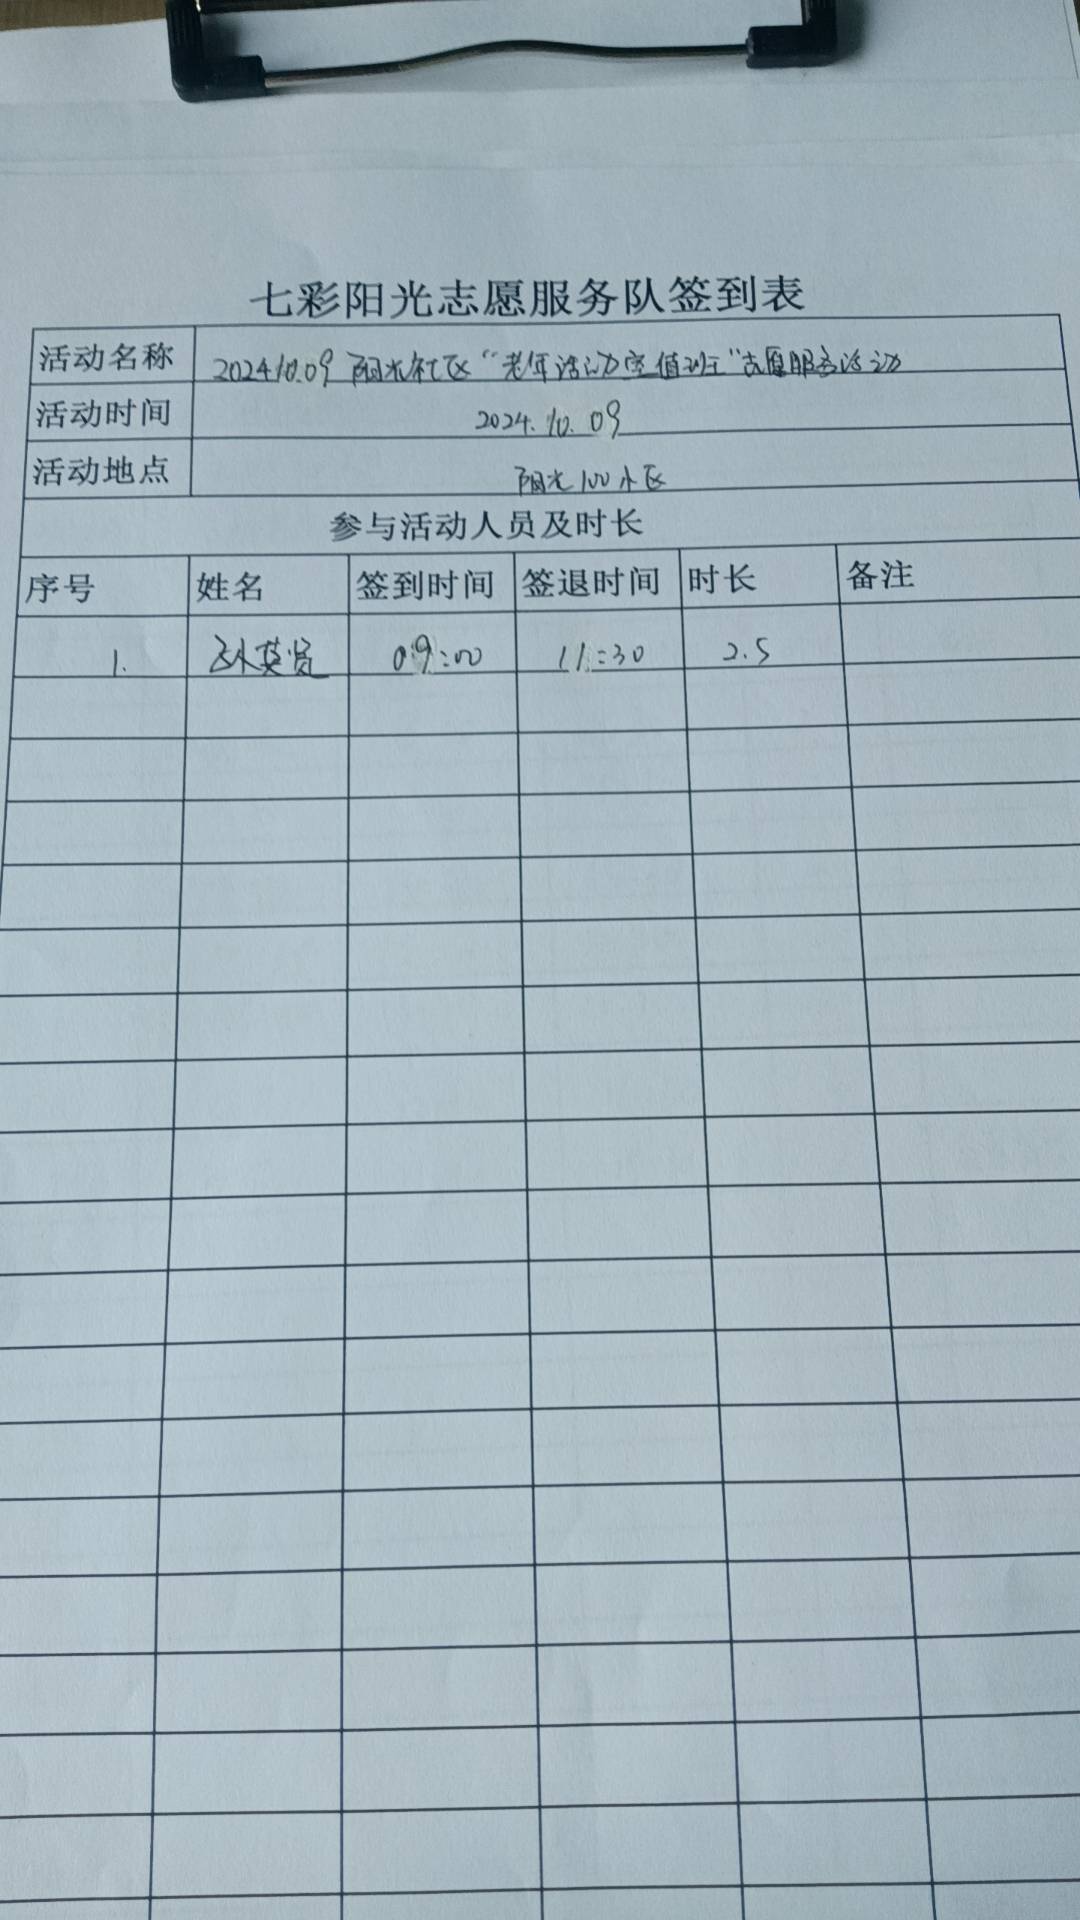 七彩阳光志愿服务队签到表
活动名称 2024.10.09 阳光社区“老年活动室值班”志愿服务活动
活动时间 2024.10.09
活动地点 阳光100小区
参与活动人员及时长
序号 姓名 签到时间 签退时间 时长 备注
1. 孙英贤 09:00 11:30 2.5